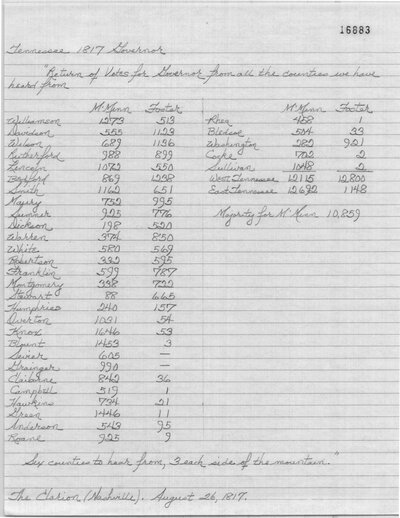 16883
Tennessee 1817 Governor
"Return of Votes for Governor from all the counties we have
heard from
McMinn Foster
Williamson 1273 513
Davidson 555 1123
Wilson 689 1136
Rutherford 988 899
Lincoln 1072 550
Bedford 869 1238
Smith 1162 651
Maury 752 995
Sumner 925 776
Dickson 198 520
Warren 374 850
White 580 569
Robertson 332 595
Franklin 599 787
Montgomery 338 722
Stewart 88 665
Humphries 240 157
Overton 1031 54
Knox 1646 53
Blount 1453 3
Sevier 605 —
Grainger 990 —
Claiborne 842 36
Campbell 519 1
Hawkins 734 21
Green 1446 11
Anderson 543 95
Roane 925 9
McMinn Foster
Rhea 468 1
Bledsoe 504 33
Washington 282 921
Cocke 702 2
Sullivan 1048 2
West Tennessee 12115 12800
East Tennessee 12692 1148
Majority for McMinn 10,859
Six counties to hear from, 3 each side of the mountain."
The Clarion (Nashville). August 26, 1817.